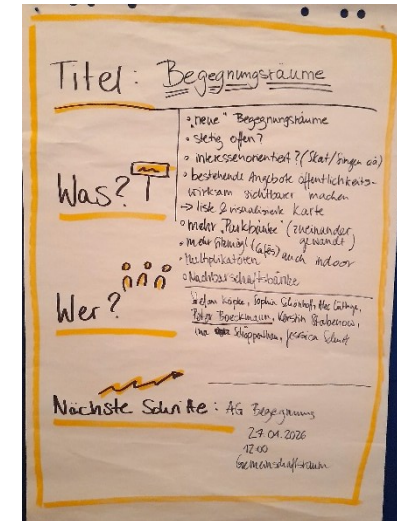 Titel: Begegnungsräume
Was?
• "neue" Begegnungsräume
• stetig offen?
• interessenorientiert? (Skat/Singen oä)
• bestehende Angebote öffentlichkeits-
wirksam sichtbarer machen
→ Liste & visualisierte Karte
• mehr "Parkbänke" (zueinander
gewandt)
• mehr (Cafés) auch indoor
• Multiplikatoren
• Nachbarschaftsbänke
Wer?
Stefan Köpke, Sophia
Peter Boeckmann, Kerstin
Jessica
Nächste Schritte: AG Begegnung
27.01.2026
12:00
Gemeinschaftsraum